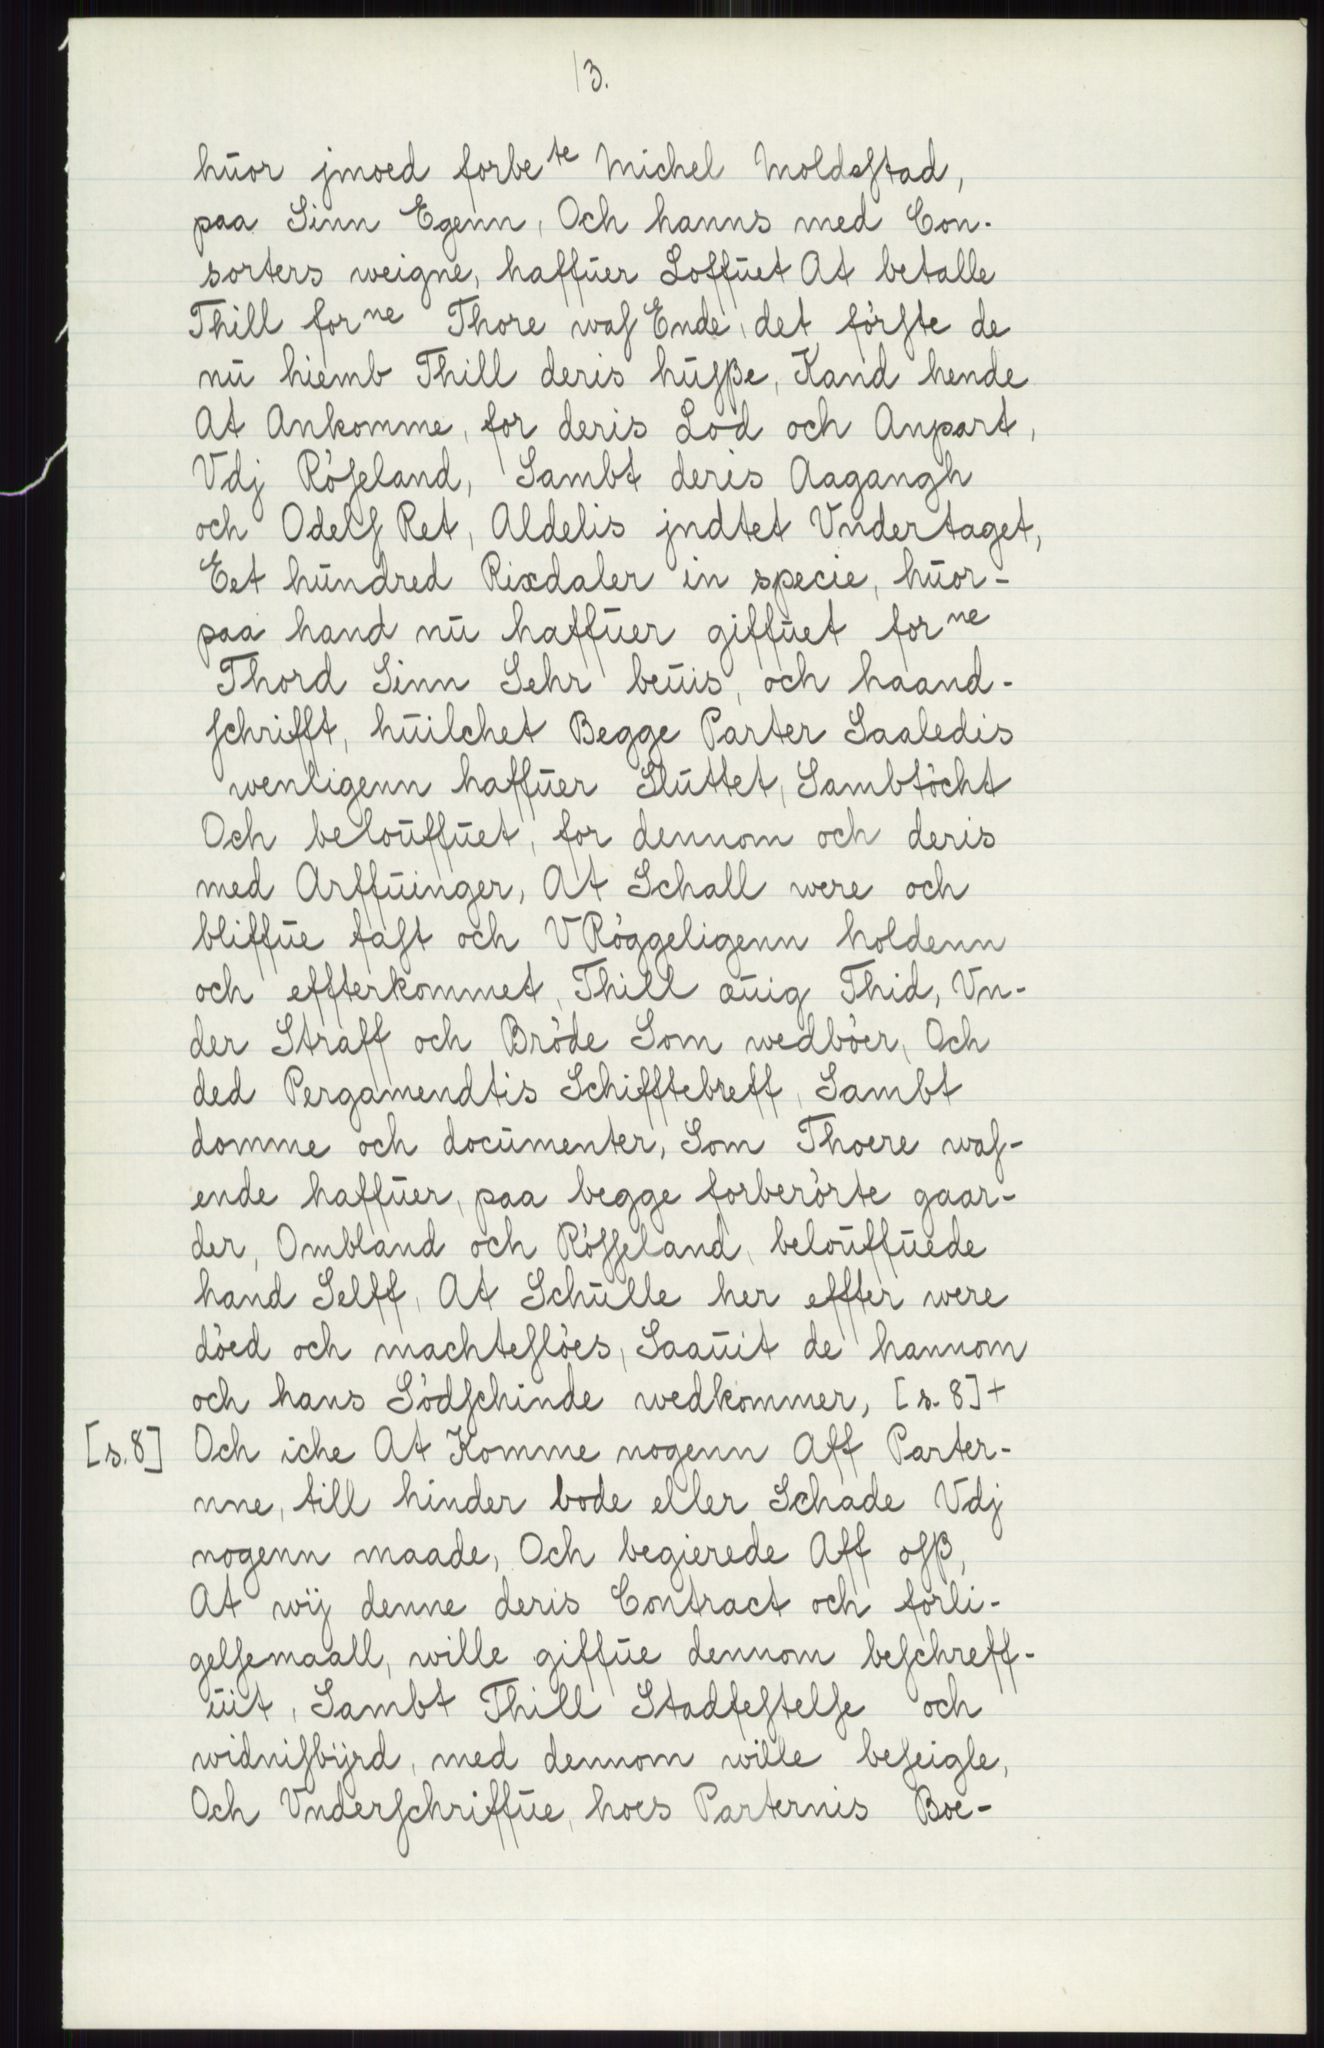 13.
hūor jmoed forbe^te Michel Moldeſtad,
paa Sinn Egenn, Och hanns med Con-
sorters weigne, haffūer Loffūet At betalle
Thill for^ne Thore waſ Ende, det förſte de
nū hiemb Thill deris hūſße, Kand hende
At Ankomme, for deris Lod och Anpart,
Vdj Röſeland, Sambt deris Aagangh
och Odelſ Ret, Aldelis jndtet Vndertaget,
Eet hūndred Rixdaler in specie, hūor-
paa hand nū haffūer giffūet for^ne
Thord Sinn Sehr beūis, och haand-
ſchrifft, hūilchet Begge Parter Saaledis
wenligenn haffūer Slūttet, Sambtöcht
Och beloūffūet, for dennom och deris
med Arffūinger, At Schall were och
bliffūe faſt och VRöggeligenn holdenn
och effterkommet, Thill æūig Thid, Vn-
der Straff och Bröde Som wedböer, Och
ded Pergamendtis Schifftebreff, Sambt
domme och documenter, Som Thoere waſ-
ende haffūer, paa begge forberörte gaar-
der, Ombland och Röſſeland, beloūffūede
hand Selff, At Schūlle her effter were
döed och machteſlöes, Saaūit de hannom
och hans Södſchinde wedkommer, [s. 8]+
[s. 8] Och iche At Komme nogenn Aff Parter-
nne, till hinder bode eller Schade Vdj
nogenn maade, Och begierede Aff oſß,
At wij denne deris Contract och forli-
gelſemaall, wille giffūe dennom beſchreff-
ūit, Sambt Thill Stadfeſtelſe och
widniſbÿrd, med dennom wille beſeigle,
Och Vnderſchriffūe, hoes Parternis Boe-